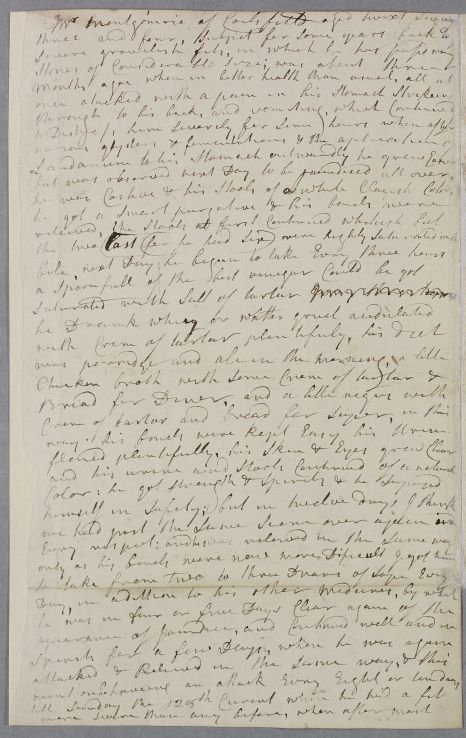 Mr Montgomrie of Coilsfield aged twixt Seventy
three and four, Subject for Some years back to
Severe gravelish fits, in which he has passed many
Stones of Considerable Size; was about three
Months agoe when in better health than usual, all at
once attacked with a pain in his Stomach Striking
through to his back, and vomiting, which Continued
to Distress him Severely for Some hours when after
various glysters & fomentations & the application of
Laudanum to his Stomach outwardly he grew Easier
but was observed next Day to be Jaundiced all over,
he was Costive & his Stools of a white Clayish Color,
he got a Smart purgative & his bowels were
relieved, the Stools at first Continued whitish but
the two last (for he had Six) were highly Saturated with
bile, next Day he began to take Every three hours
a Spoonfull of the best vinegar Could be got
Saturated with Salt of tartar
he Drank whey or watter gruel acidulated
with Crem of tartar plentifuly, his diet
was porridge and ale in the morning, a little
Chicken broth with Some Crem of tartar &
Bread for Diner, and a little negus with
Crem of tartar and bread for Super, in this
way his bowels were kept Easy his Urine
flowed plentifully, his Skin & Eyes grew Clear
and his urine and Stools Continued of a natural
Color: he got Strength & Spirits & he Suposed
himself in Safety; but in twelve days I think
we had just the Same Scene over again in
Every respect: and was relieved in the Same way
only as his bowels were now more Difficult I got him
to take from two to three Drams of Sope Every
Day, in adition to his other Medicines, by which
he was in four or five Days Clear again of the
apearance of Jaundice, and Continued well and in
Spirits for a few Days, when he was again
attacked & Relieved in the Same way, & this
went on haveing an attack Every Eight or ten days
till Sunday the 28th Current when he had a fit
more Severe than any before, when after most